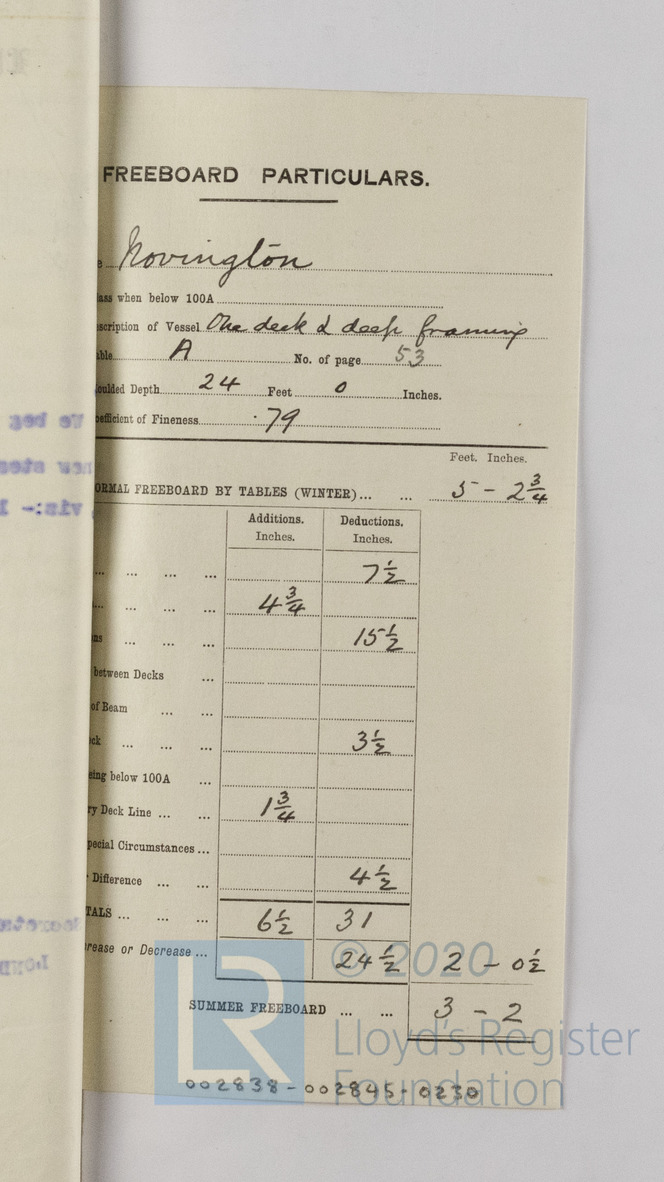 FREEBOARD PARTICULARS.
e Novington
lass when below 100A
scription of Vessel One deck & deep framing
able A No. of page 53
oulded Depth 24 Feet 0 Inches.
oefficient of Fineness .79
Feet. Inches.
ORMAL FREEBOARD BY TABLES (WINTER)... ... 5 - 2 3/4
Additions. Inches. Deductions. Inches.
... ... ... ... 7 1/2
... ... ... ... 4 3/4
ns ... ... ... 15 1/2
between Decks ...
of Beam ... ...
ck ... ... ... 3 1/2
eing below 100A ...
ry Deck Line ... ... 1 3/4
pecial Circumstances ...
Difference ... ... 4 1/2
TALS ... ... ... 6 1/2 31
rease or Decrease ... 24 1/2 2 - 0 1/2
SUMMER FREEBOARD ... ... 3 - 2
© 2020
Lloyd's Register
Foundation
LR
002838-002845-0230